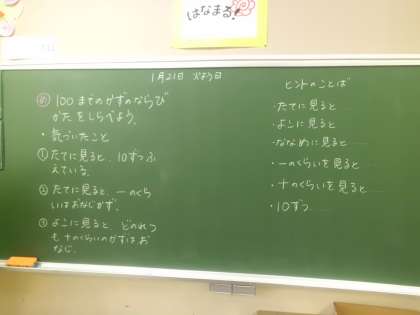 はなまる!
1月21日 火よう日
め 100までのかずのならび
かたをしらべよう。
・気づいたこと
① たてに見ると、10ずつふ
えている。
② たてに見ると、一のくら
いはおなじかず。
③ よこに見ると、どのれつ
も十のくらいのかずはお
なじ。
ヒントのことば
・たてに見ると……
・よこに見ると……
・ななめに見ると……
・一のくらいを見ると……
・十のくらいを見ると……
・10ずつ……